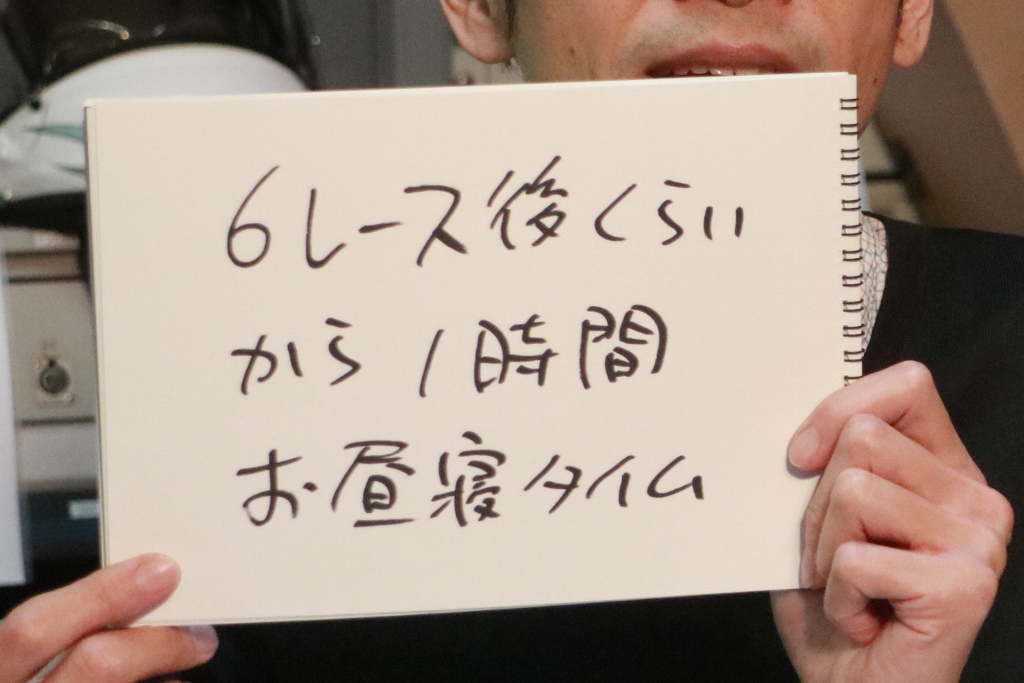 6レース後くらい
から1時間
お昼寝タイム